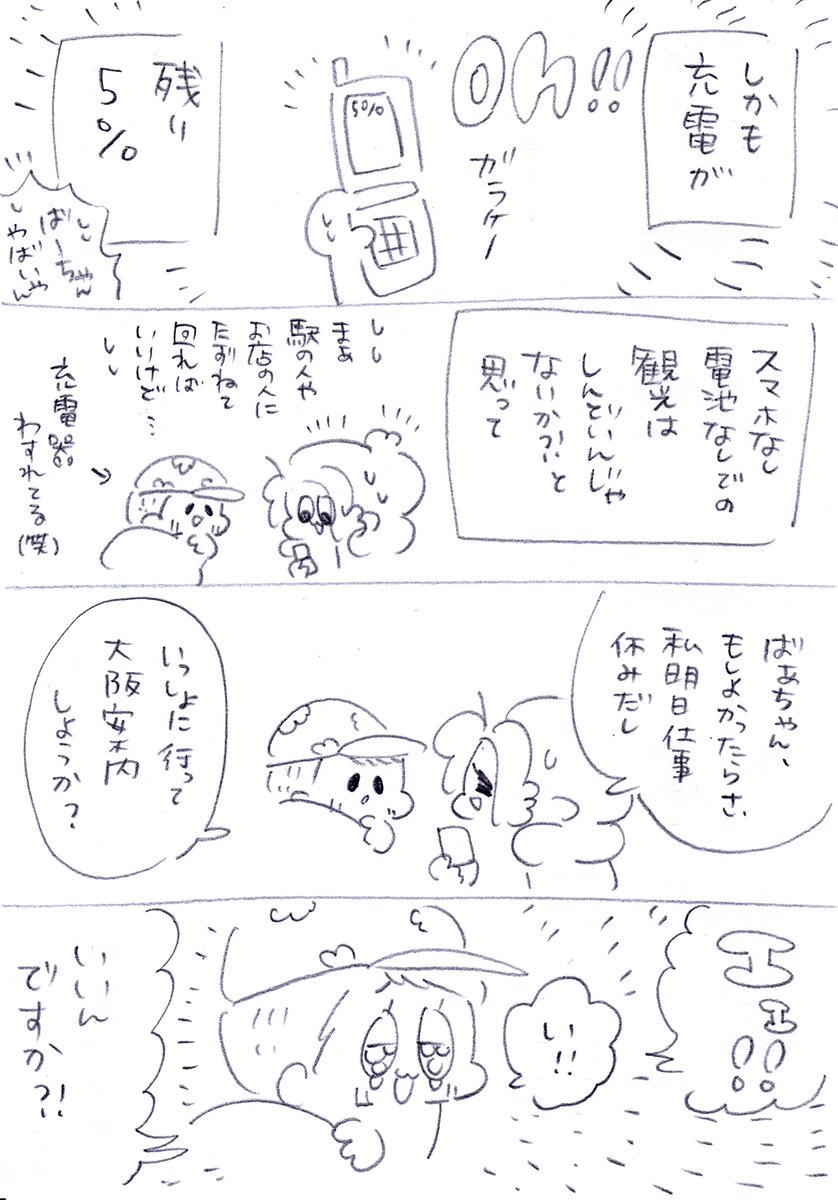 しかも
充電が
oh!!
ガラケー
5%
残り
5%
ばーちゃん
やばいやん
スマホなし
電池なしでの
観光は
しんどいんじゃ
ないか?!と
思って
まあ
駅の人や
お店の人に
たずねて
回れば
いいけど…
充電器
わすれてる(笑)
ばあちゃん、
もしよかったらさ、
私明日仕事
休みだし
いっしょに行って
大阪案内
しようか?
エエ!!
い!!
いいん
ですか?!